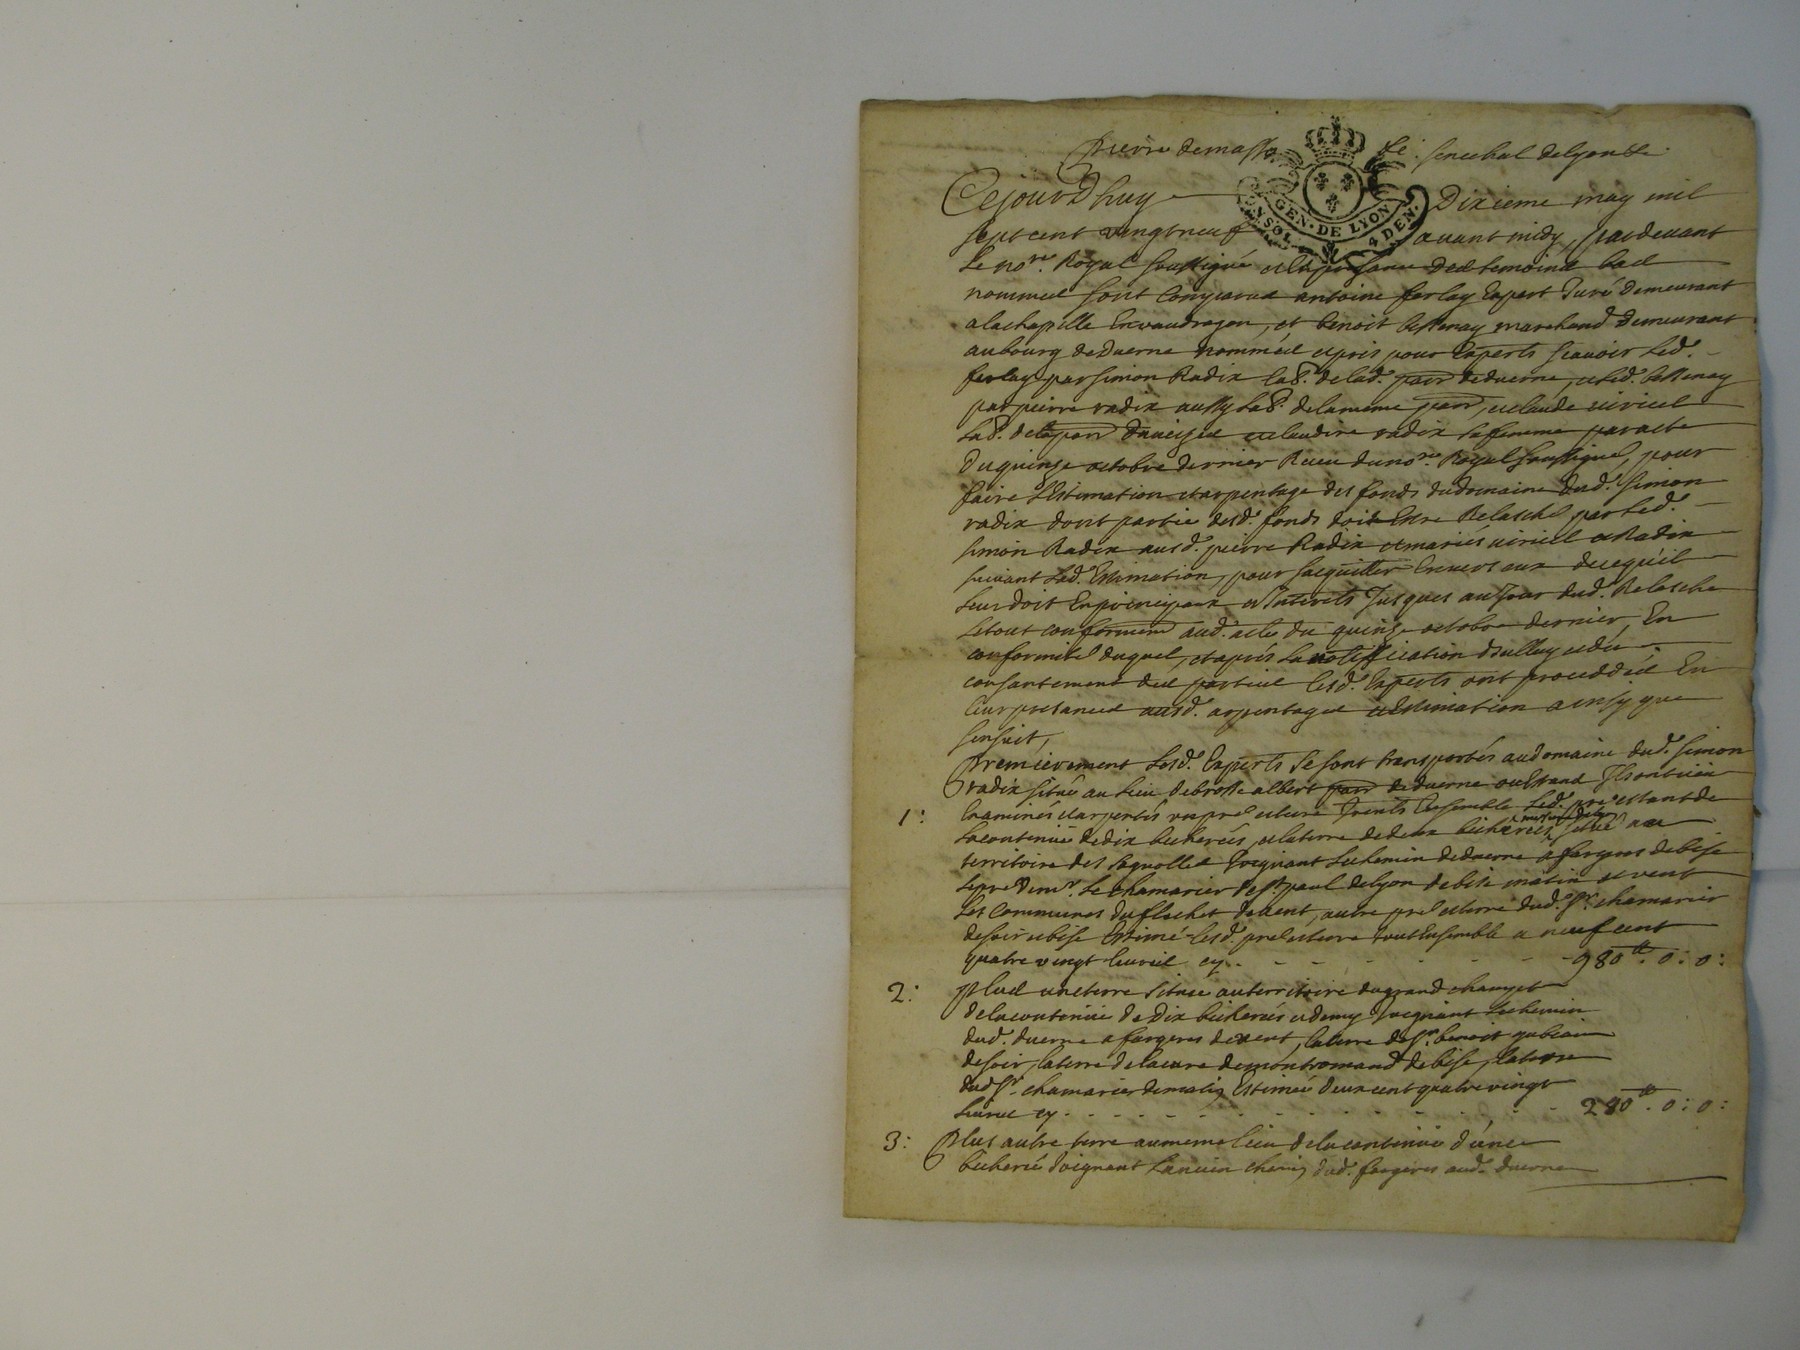 Pierre demasso Se: senechal delyon &c
Cejourdhuy Dixieme may mil
GEN · DE LYON
UN SOL 4 DEN ·
sept cent vingt neuf avant midy, pardevant
Le no.re Royal soussigné et en presance des temoins bas
nommes sont comparus antoine ferlay Expert Juré demeurant
alachapelle Envaudragon, et benoit bessenay marchand demeurant
aubourg deduerne nommés et pris pour Experts scavoir Led.
ferlay par simon Radix lab.r delad. parr deduerne, et Led. bessenay
par pierre radix aussy Lab.r delameme parr, et claude
Lab.r de la parr et claudine radix sa femme par acte
du quinze octobre dernier Receu du no.re Royal soussigné, pour
faire L'Estimation et arpentage des fonds du domaine dud. simon
radix dont partie desd. fonds doit Estre Relasché par Led.
simon Radix ausd. pierre Radix et maries et Radix
suivant Lad. Estimation, pour s'acquitter Envers eux de ce qu'il
Leur doit En principaux et Interets Jusques au Jour dud. Relasche
Le tout conformem aud. acte du quinze octobre dernier, En
conformité duquel, et après La notiffication d'Iceluy et du
consantement des parties Lesd. Experts ont proceddés En
Leur presance ausd. arpentages et Estimation ainsy que
sensuit,
Premierement Lesd. Experts se sont transportés au domaine dud. simon
radix situé au Lieu debrosse albert parr deduerne ou Estant Ils ont
1: Examinés et arpentés un pré et terre Joints Ensemble Led. pré estant de
La contenue de dix bicherées, et la terre de deux bicherées situé au
territoire des Joignant Le chemin deduerne a fargeres de bise
Le pré de mr. Le chamarier de st paul delyon de bise matin et vent
Les communes du flachet de vent, autre pré et terre dud. sr. chamarier
de soir et bise Estimé Lesd. pré et terre tout Ensemble a neuf cent
quatre vingt Livres cy - - - - - - - 980 tt: 0: 0:
2: Plus une terre située au territoire du grand champt
de la contenue de dix bicherées et demy Joignant Le chemin
dud. duerne a fargeres de vent, la terre de sr. benoit
de soir, la terre de la cure de montromand de bise, la terre
dud sr. chamarier de matin Estimée deux cent quatre vingt
Livres cy - - - - - - - - - - 280 tt: 0: 0:
3: Plus autre terre au meme Lieu de la contenue d'une
bicherée Joignant L'ancien chemin dud. fargeres aud. duerne